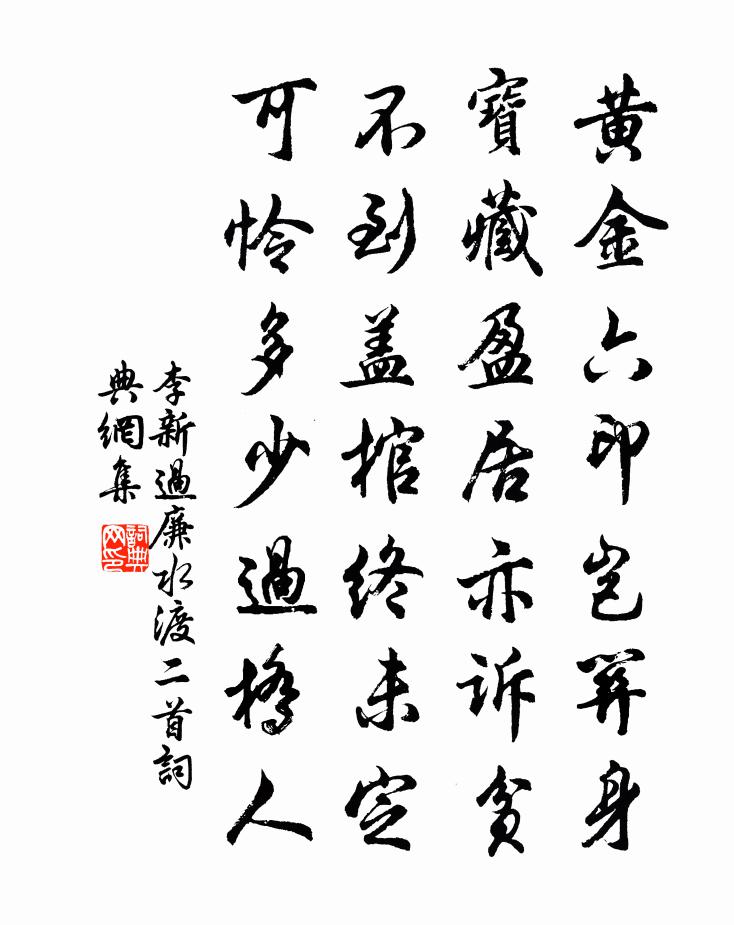 黄金六印豈關身
寶藏盈居亦訴貧
不到盖棺終未定
可怜多少過橋人
李新過廉水渡二首詞
典網集
詞典
网印